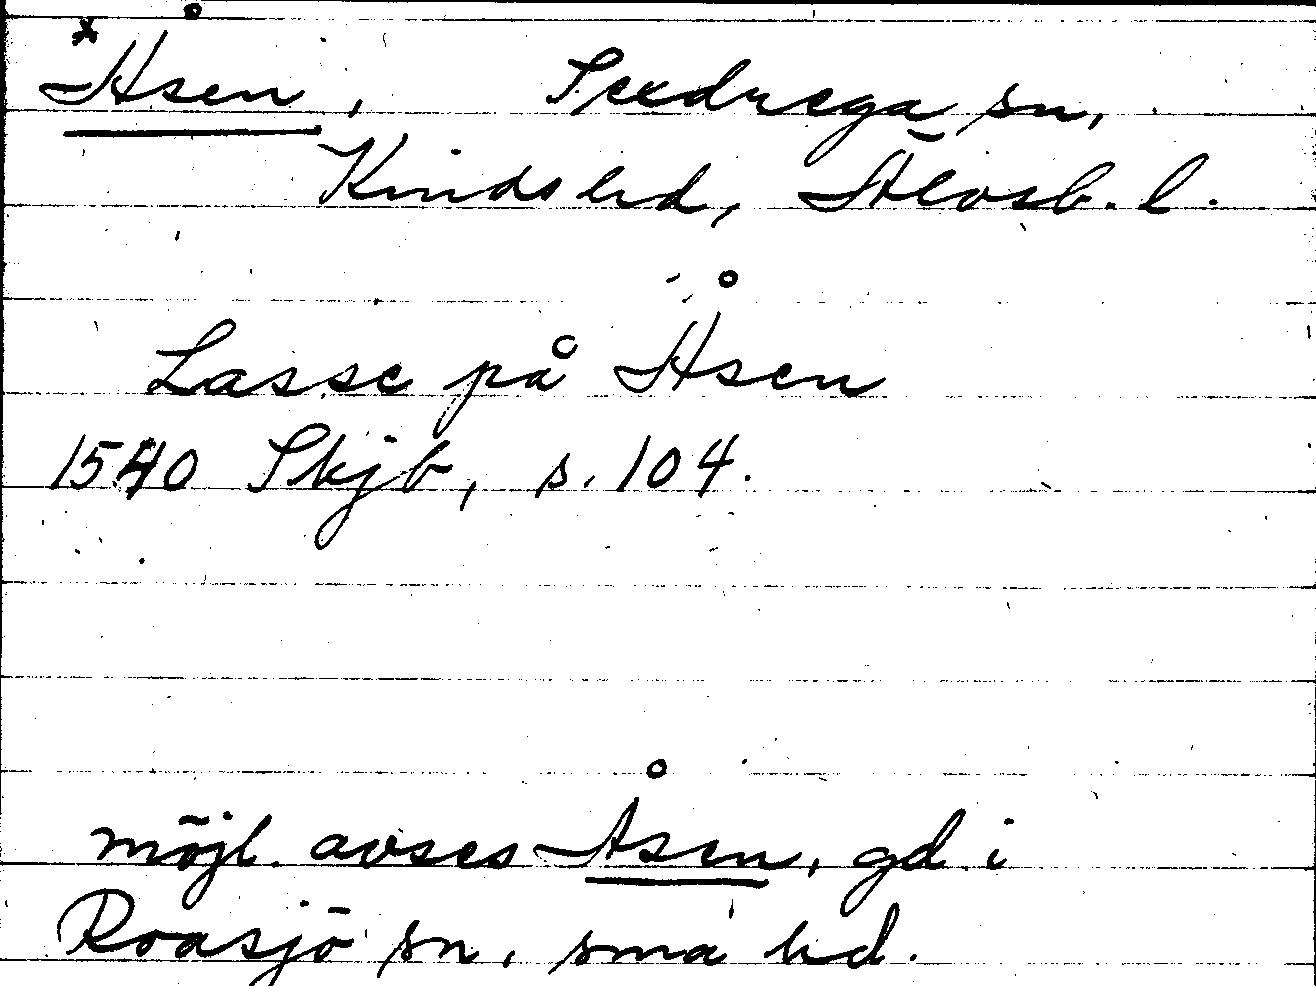 *Åsen, Sexdrega sn,
Kinds hd, Älvsb. l.
Lasse på Åsen
1540 Skjb, s. 104.
möjl. avses Åsen, gd i
Roasjö sn, sma hd.